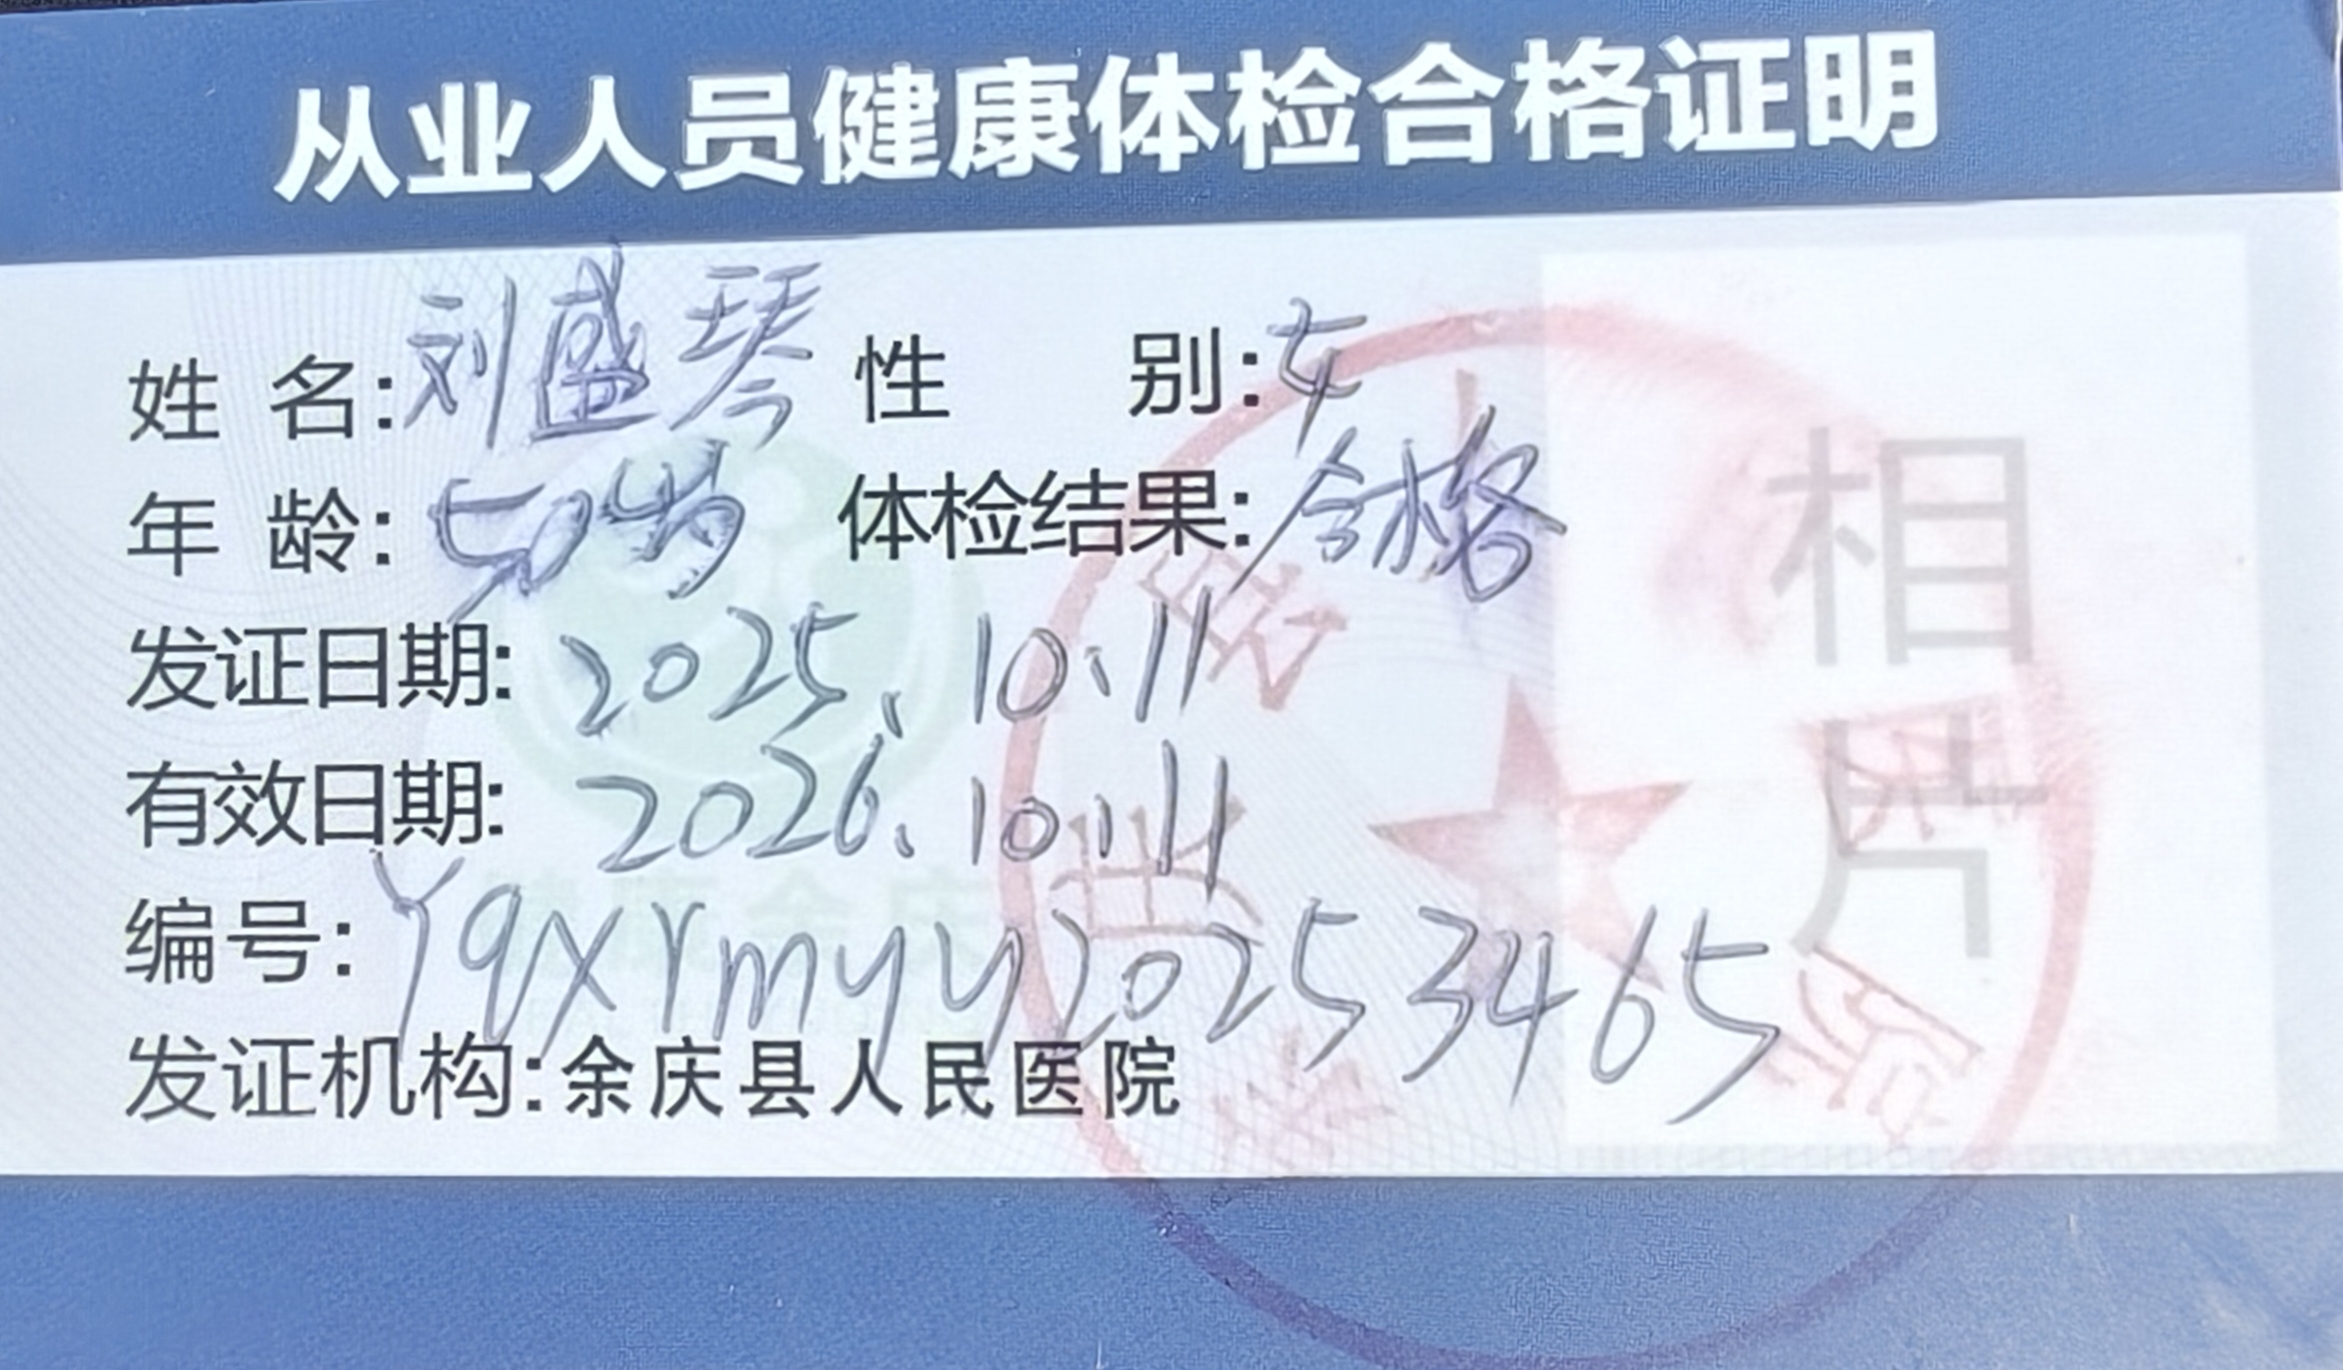 从业人员健康体检合格证明
姓名:刘盛琴 性别:女
年龄:50岁 体检结果:合格
发证日期:2025.10.11
有效日期:2026.10.11
编号:YqXrmyy20253465
发证机构:余庆县人民医院
相片